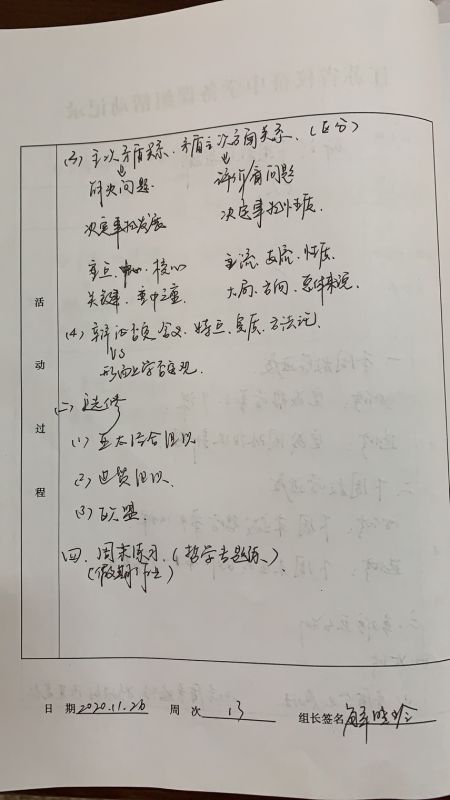 (3) 主次矛盾关系、矛盾主次方面关系、(区分)
解决问题 评价看问题
决定事物发展 决定事物性质
重点、中心、核心 主流、支流、性质
关键、重中之重 大局、方向、总体来说
(4) 辩证否定 含义、特点、实质、方法论
VS
形而上学否定观
(二) 选修
(1) 亚太经合组织
(2) 世贸组织
(3) 欧盟
四、周末练习、(哲学专题练)
(假期作业)
活动过程
日 期 2020.11.26 周 次 13 组长签名